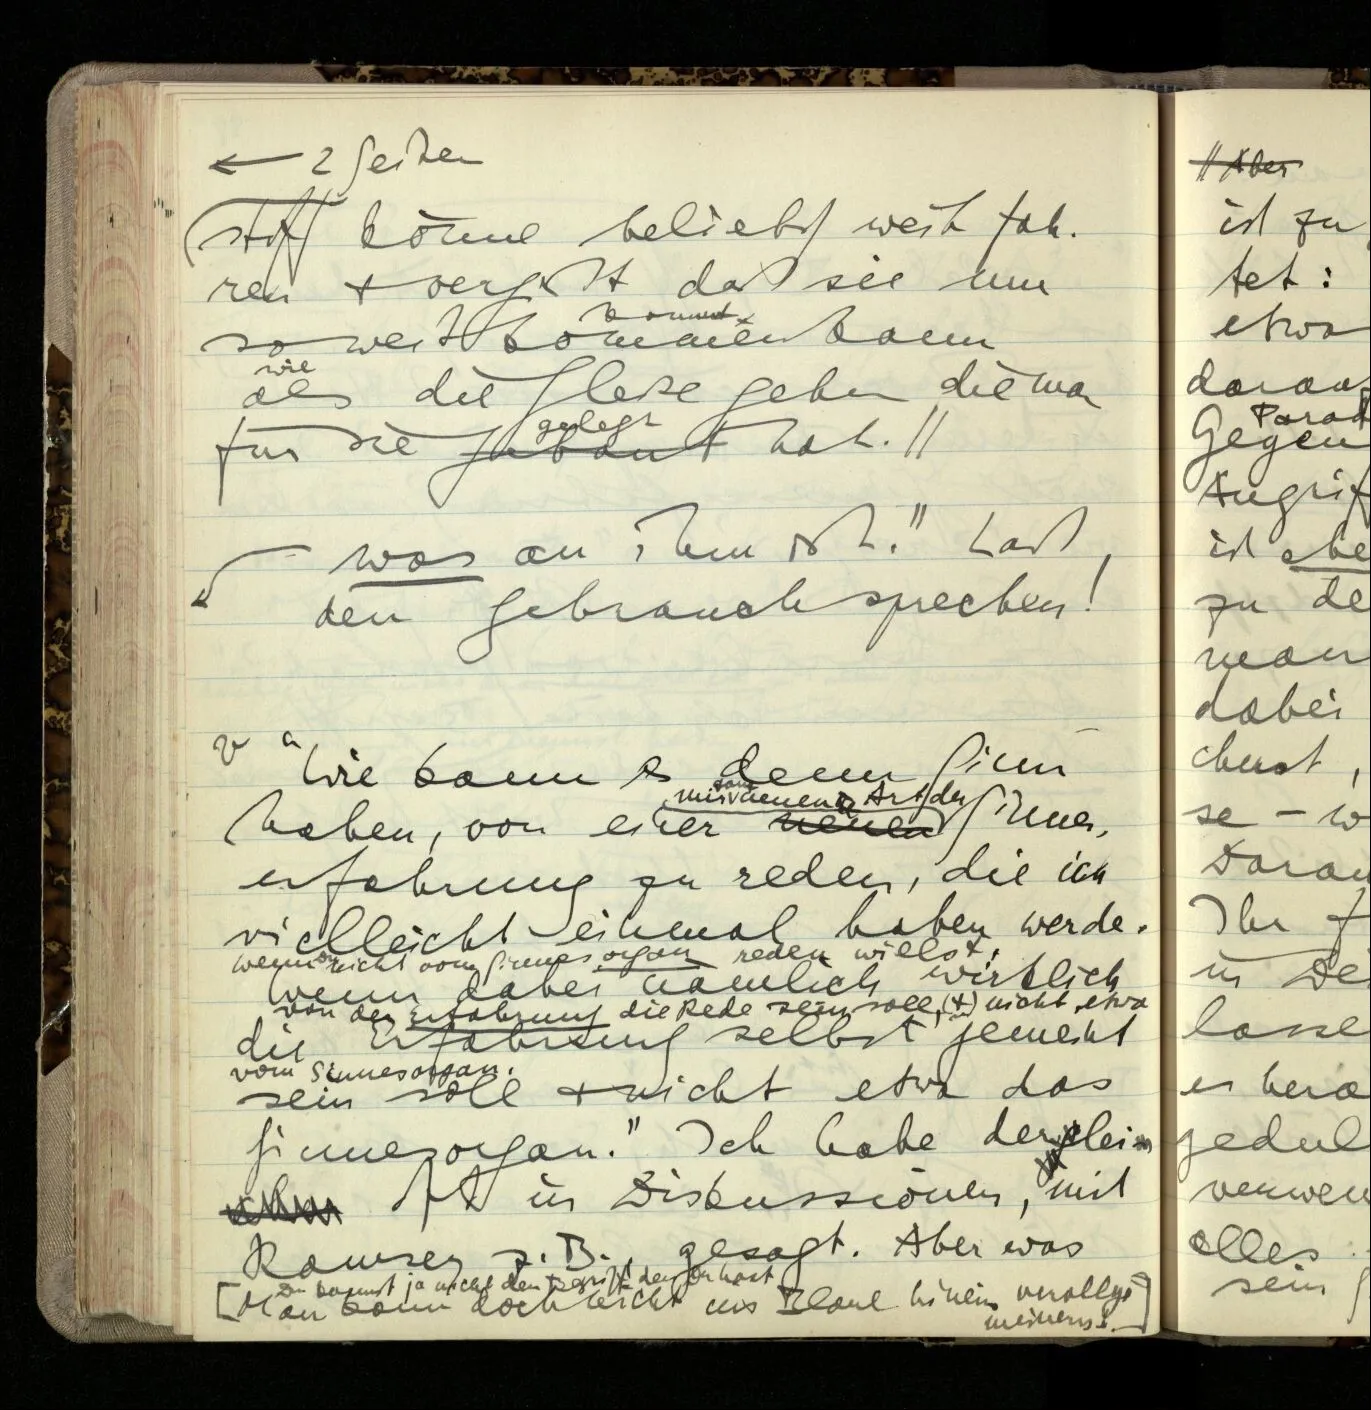 ← 2 Seiten
stoff könne beliebig weit fah-
ren & vergißt daß sie nur
kommt
so weit kommen kann
wie
als die Gleise gehen die man
gelegt
für sie gebaut hat. //
was an ihm ist." Laß
den Gebrauch sprechen!
"Wie kann es denn Sinn
Art der
haben, von einer neuen Sinnes-
erfahrung zu reden, die ich
vielleicht einmal haben werde.
wenn nicht vom Sinnesorgan reden willst.
Wenn dabei nämlich wirklich
von der Erfahrung die Rede sein soll, (&) nicht etwa
die Erfahrung selbst gemeint
vom Sinnesorgan.
sein soll & nicht etwa das
Sinnesorgan." Ich habe derglei-
chen oft in Diskussionen, mit
Ramsey z.B., gesagt. Aber was
Du kannst ja nicht den Begriff den Du hast
[Man kann doch nicht ins Blaue hinein verallge-
meinern!]
// Aber
ist zu
tet:
etwa
darau
Parad
Gegen
Angrif
ist ebe
zu de
man
dabei
chest,
se – w
Daran
Ihr f
in De
lasse
er hera
gedul
verwen
alles
sein